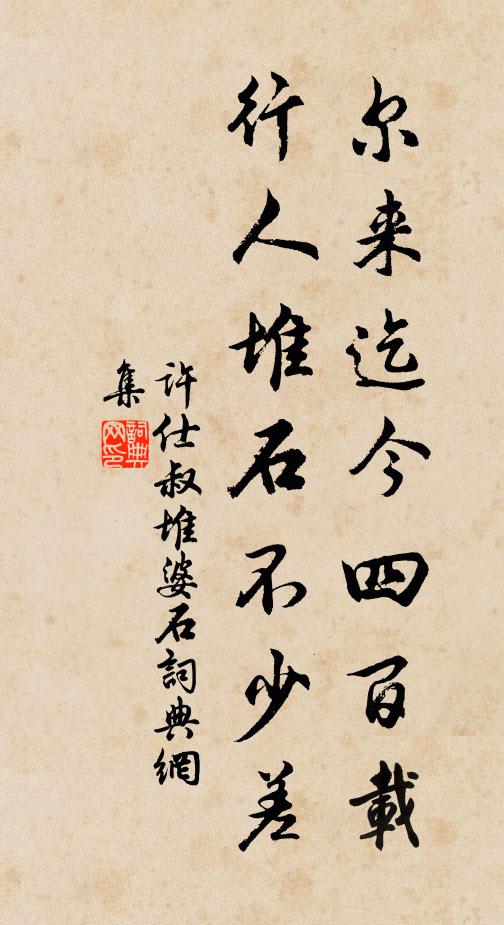 尔来迄今四百載
行人堆石不少差
许仕叔堆婆石詞典網
集
詞典
网印